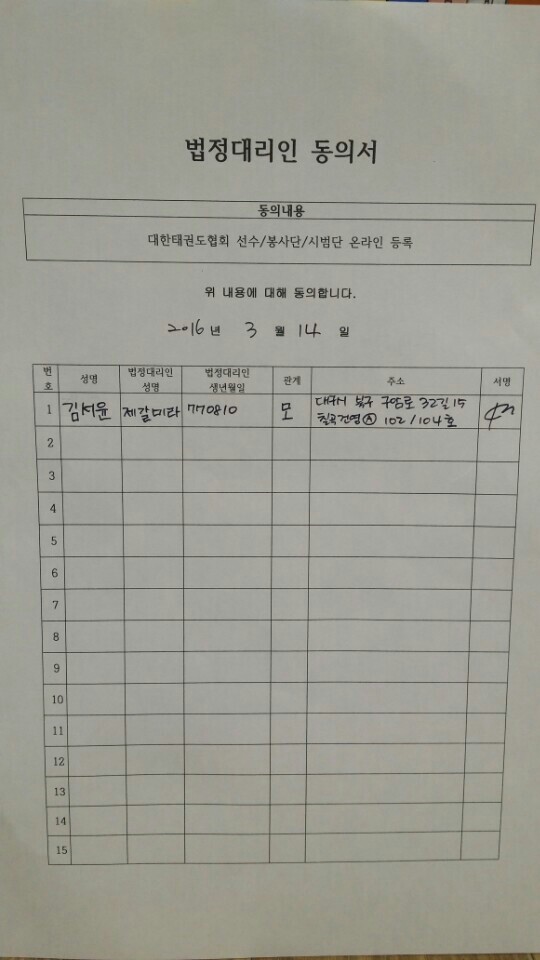 법정대리인 동의서
동의내용
대한태권도협회 선수/봉사단/시범단 온라인 등록
위 내용에 대해 동의합니다.
2016년 3 월 14 일
번호 성명 법정대리인 성명 법정대리인 생년월일 관계 주소 서명
1 김서윤 제갈미라 770810 모 대구시 북구 구암로 32길 15
칠곡건영Ⓐ 102/104호
2
3
4
5
6
7
8
9
10
11
12
13
14
15